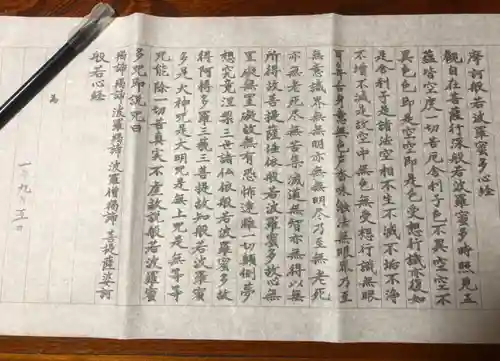 摩訶般若波羅蜜多心経
観自在菩薩行深般若波羅蜜多時照見五
蘊皆空度一切苦厄舎利子色不異空空不
異色色即是空空即是色受想行識亦復如
是舎利子是諸法空相不生不滅不垢不浄
不増不減是故空中無色無受想行識無眼
耳鼻舌身意無色声香味触法無眼界乃至
無意識界無無明亦無無明尽乃至無老死
亦無老死尽無苦集滅道無智亦無得以無
所得故菩提薩埵依般若波羅蜜多故心無
罣礙無罣礙故無有恐怖遠離一切顛倒夢
想究竟涅槃三世諸仏依般若波羅蜜多故
得阿耨多羅三藐三菩提故知般若波羅蜜
多是大神咒是大明咒是無上咒是無等等
咒能除一切苦真実不虚故説般若波羅蜜
多咒即説咒曰
羯諦羯諦波羅羯諦波羅僧羯諦菩提薩婆訶
般若心経
為